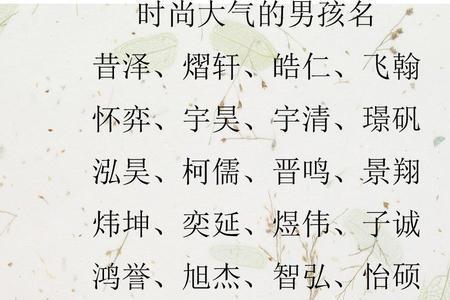 时尚大气的男孩名
昔泽、熠轩、皓仁、飞翰
怀弈、宇昊、宇清、璟矾
泓昊、柯儒、晋鸣、景翔
炜坤、奕延、煜伟、子诚
鸿誉、旭杰、智弘、怡硕